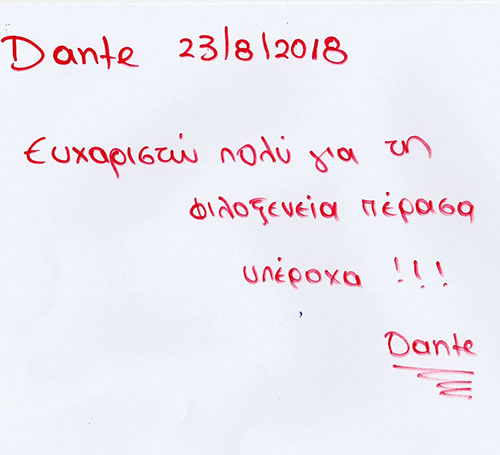 Dante 23/8/2018
Ευχαριστώ πολύ για τη
φιλοξενεία πέρασα
υπέροχα !!!
Dante